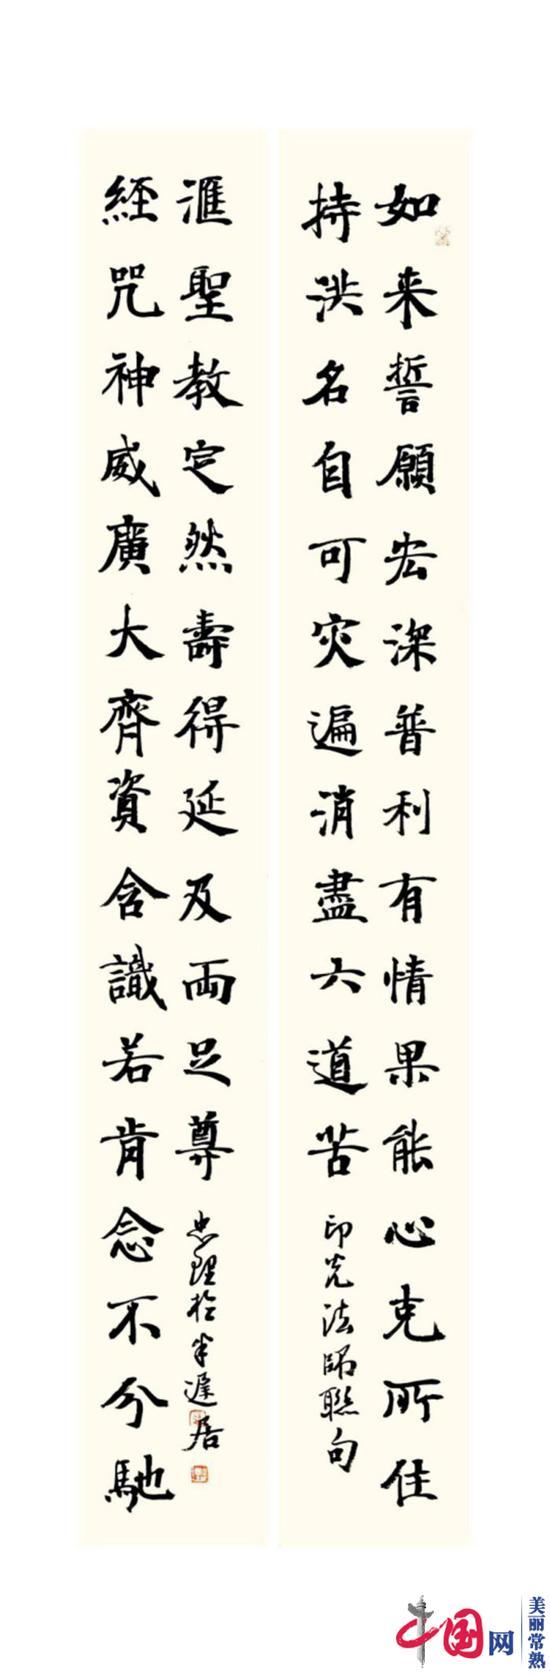 如来誓願宏深普利有情果能心克所住
持洪名自可灾遍消盡六道苦
印光法師聯句
經咒神威廣大齊資含識若肯念不分馳
滙聖教定然壽得延及両足尊
忠理於半遲居
中国网
美丽常熟